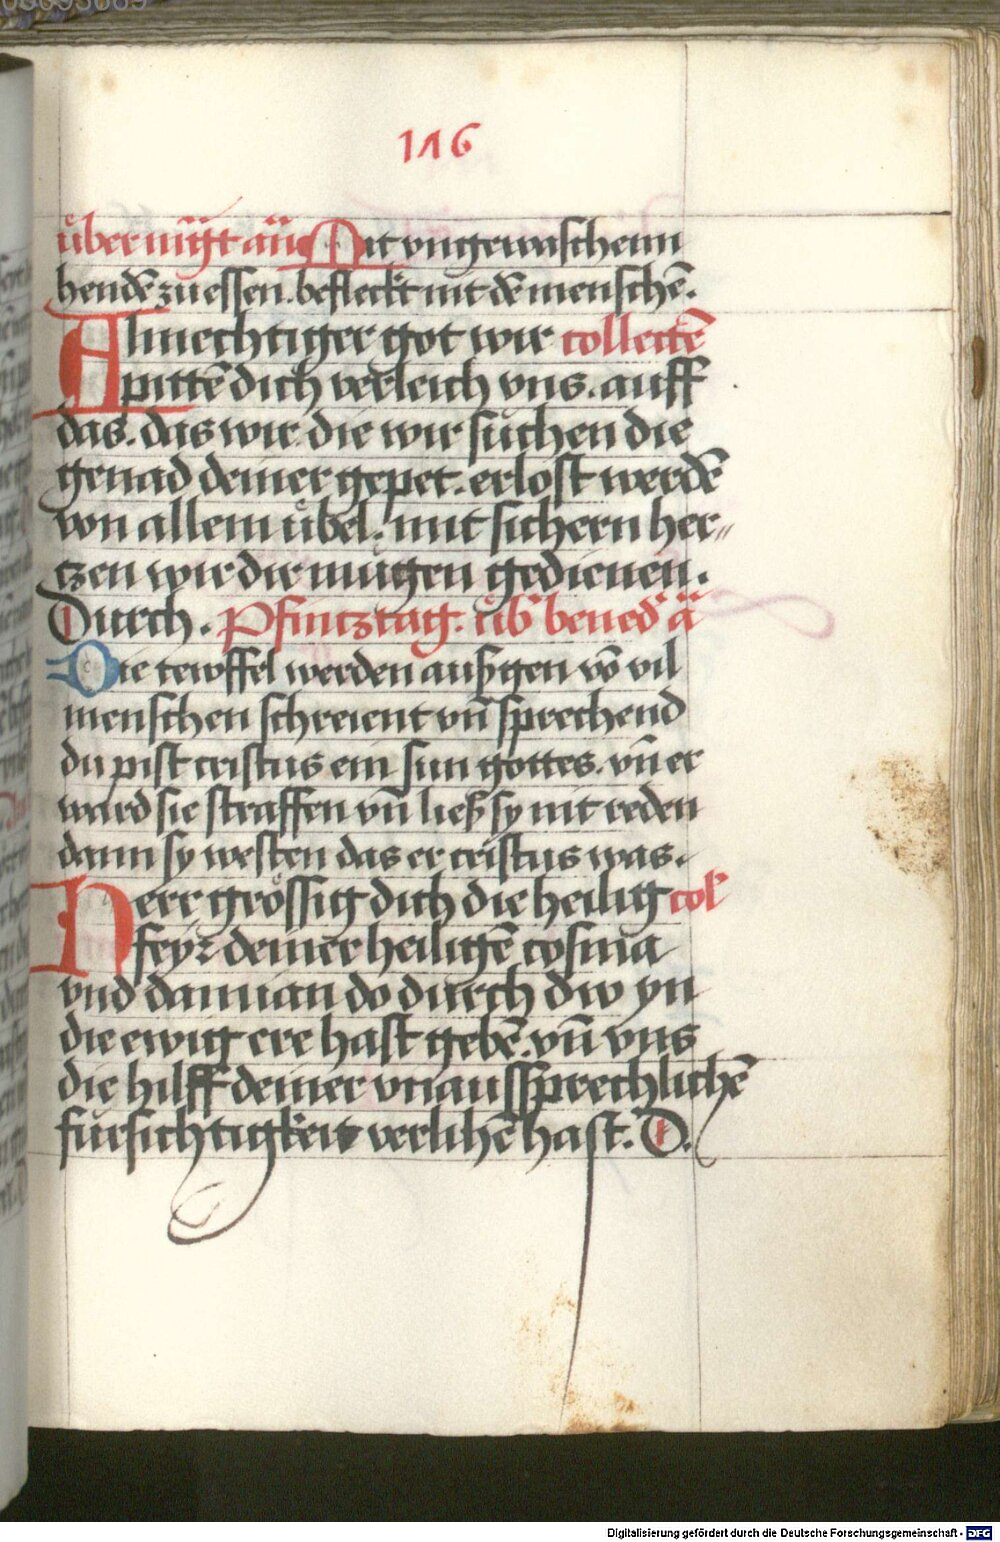 116
über mǖgt an̄ Mit vngewaschenn
hendē zu essen. befleckt nit dē menschē.
Almechtiger got wir collectē
pittē dich verleich vns. auff
das. das wir die wir suchen die
genad deiner gepet. erlost werdē
von allem übel. mit sichern her„
tzen wir dir mügen gedienen.
Durch. Pfincztag. üb̄ bened̄ ā
Die tewffel werden auszgen vō vil
menschen schreient vn̄ sprechend
du pist cristus ein sun gottes. vn̄ er
ward sie straffen vn̄ liesz sy nit reden
dann sy westen das er cristus was.
Herr grössig dich die heilig col
feyr deiner heiligē cosma
vnd damian do durch dw yn
die ewig ere hast gebē. vn̄ vns
die hilff deiner vnaussprechlichē
fürsichtigkeit verlihē hast. D.
Digitalisierung gefördert durch die Deutsche Forschungsgemeinschaft - DFG